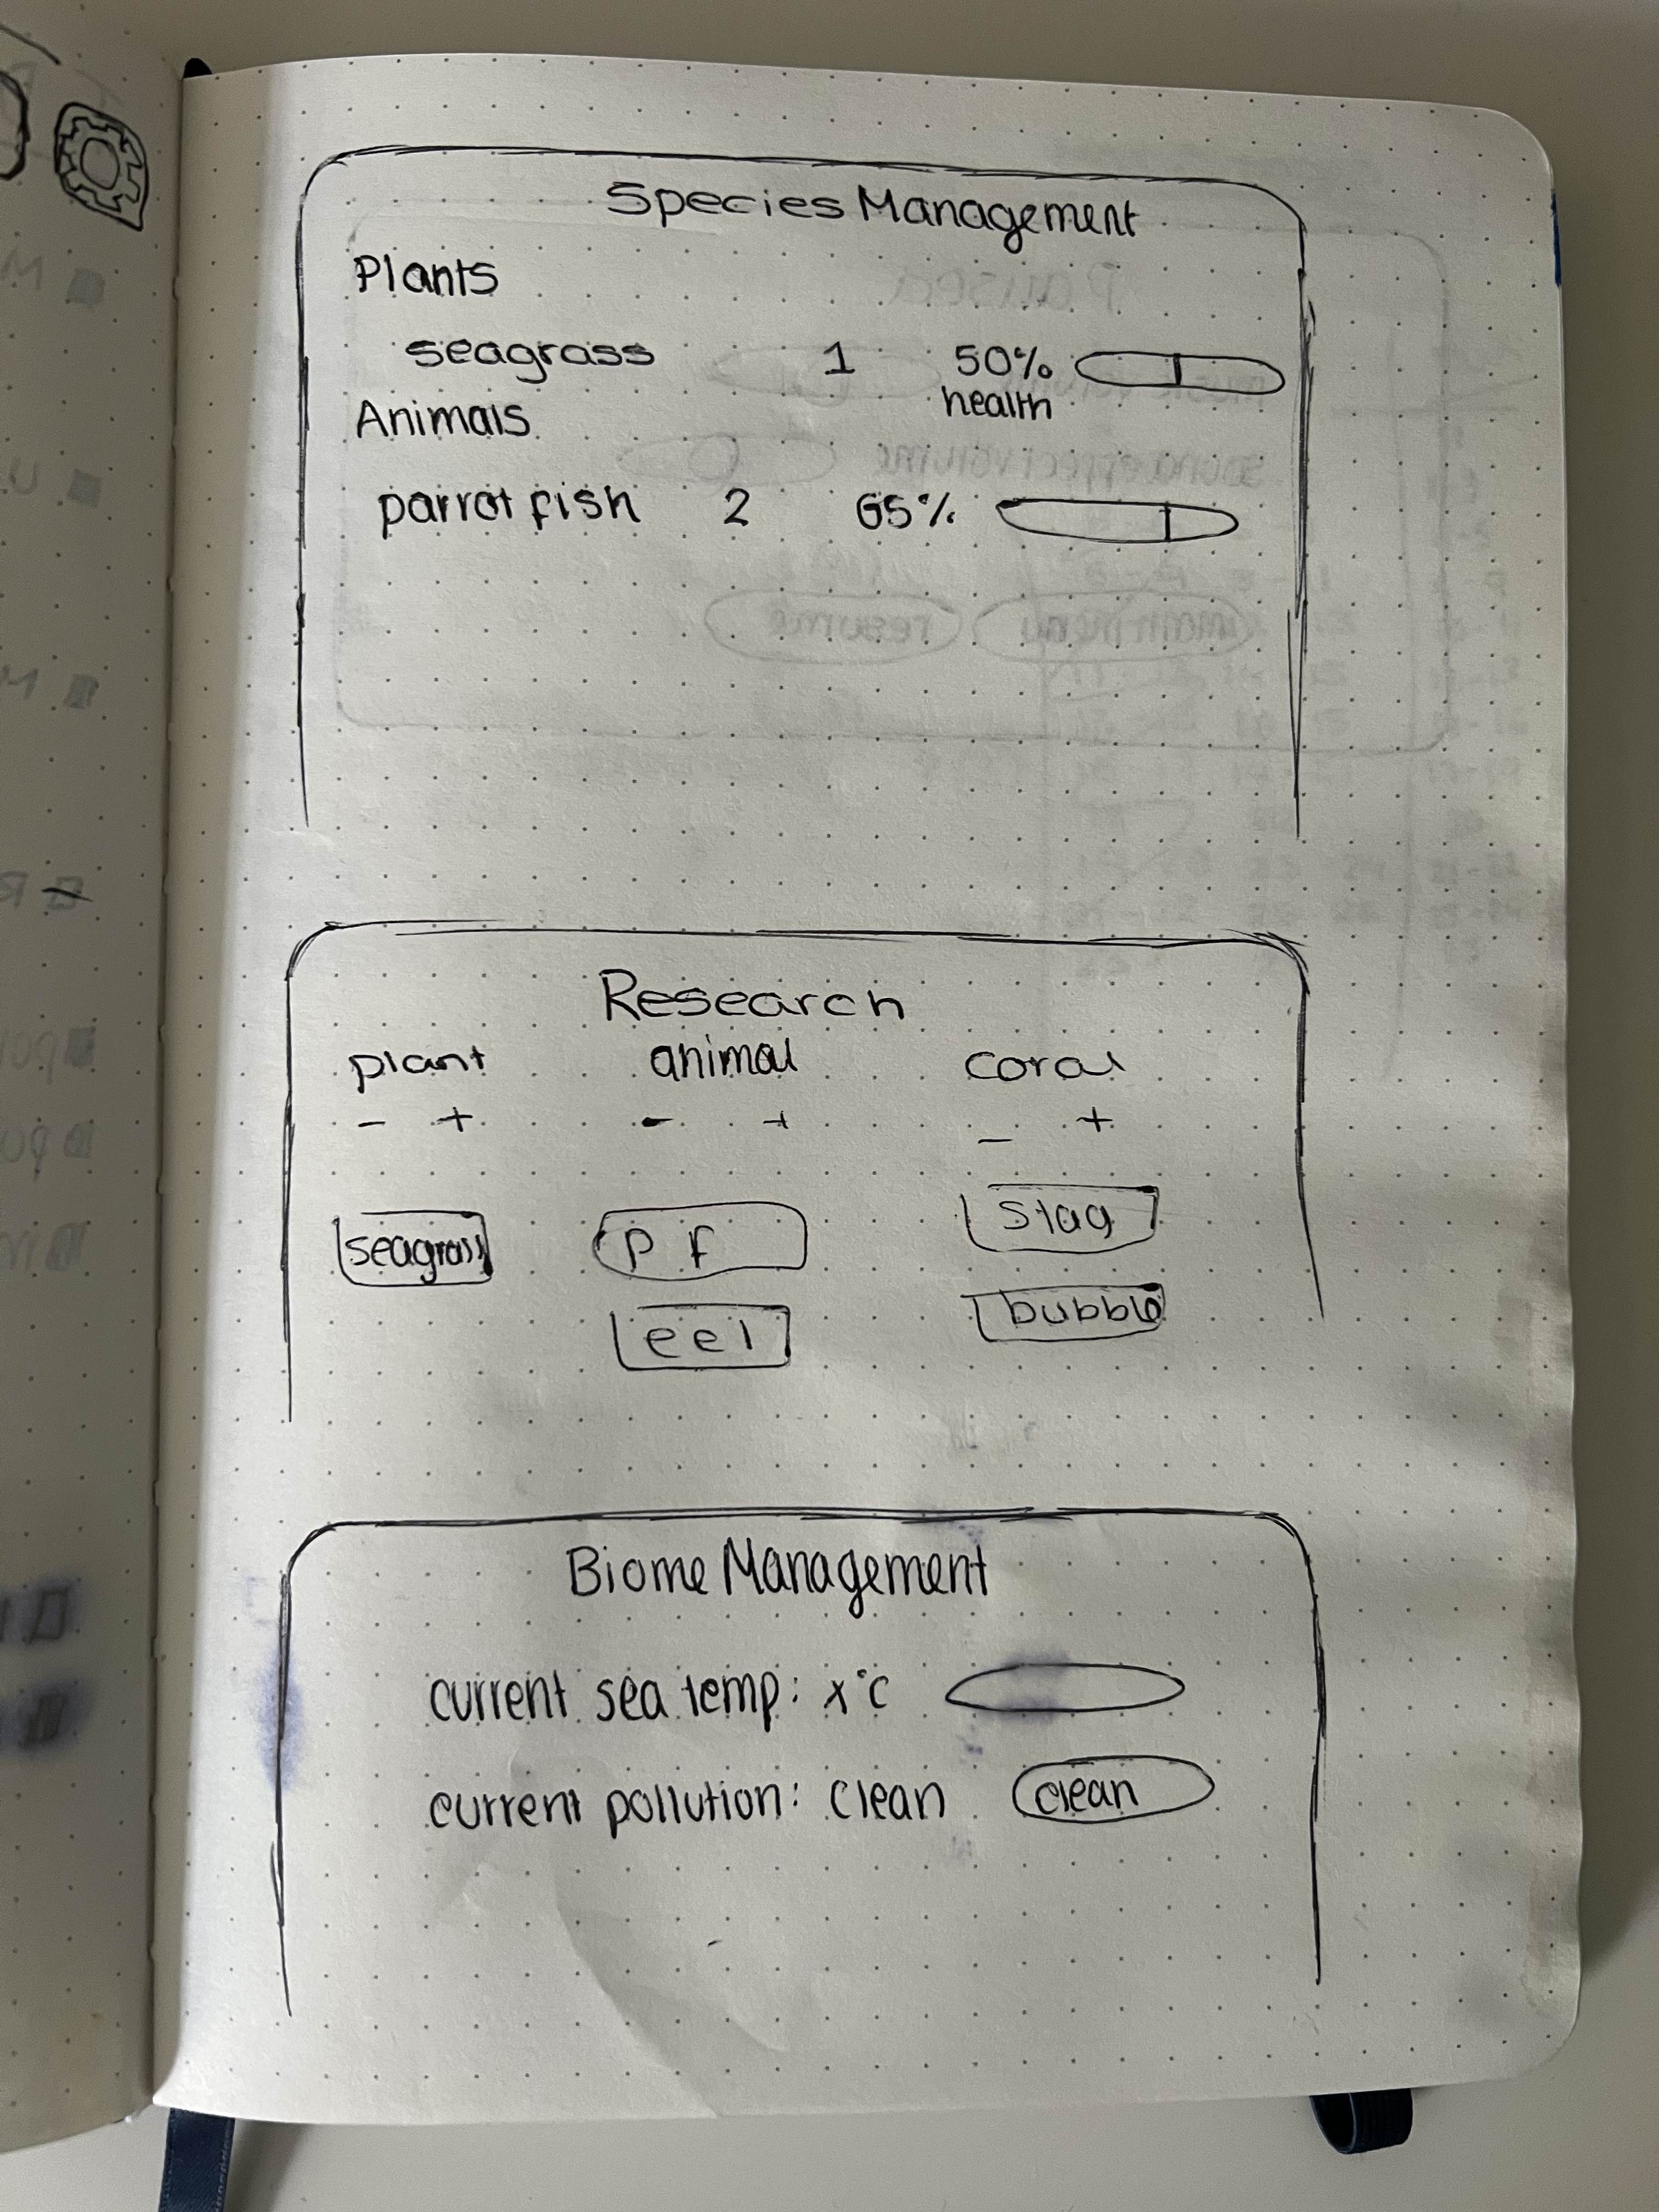 Species Management
Plants
seagrass 1 50%
health
Animals
parrot fish 2 65%
Research
plant animal coral
- + - + - +
seagrass p f stag
eel bubble
Biome Management
current sea temp: x°c
current pollution: clean clean